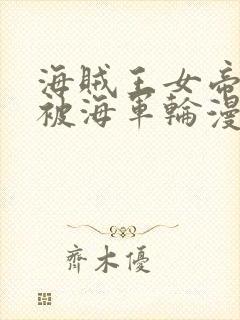 海賊王女帝
被海軍輪漫
齊木優